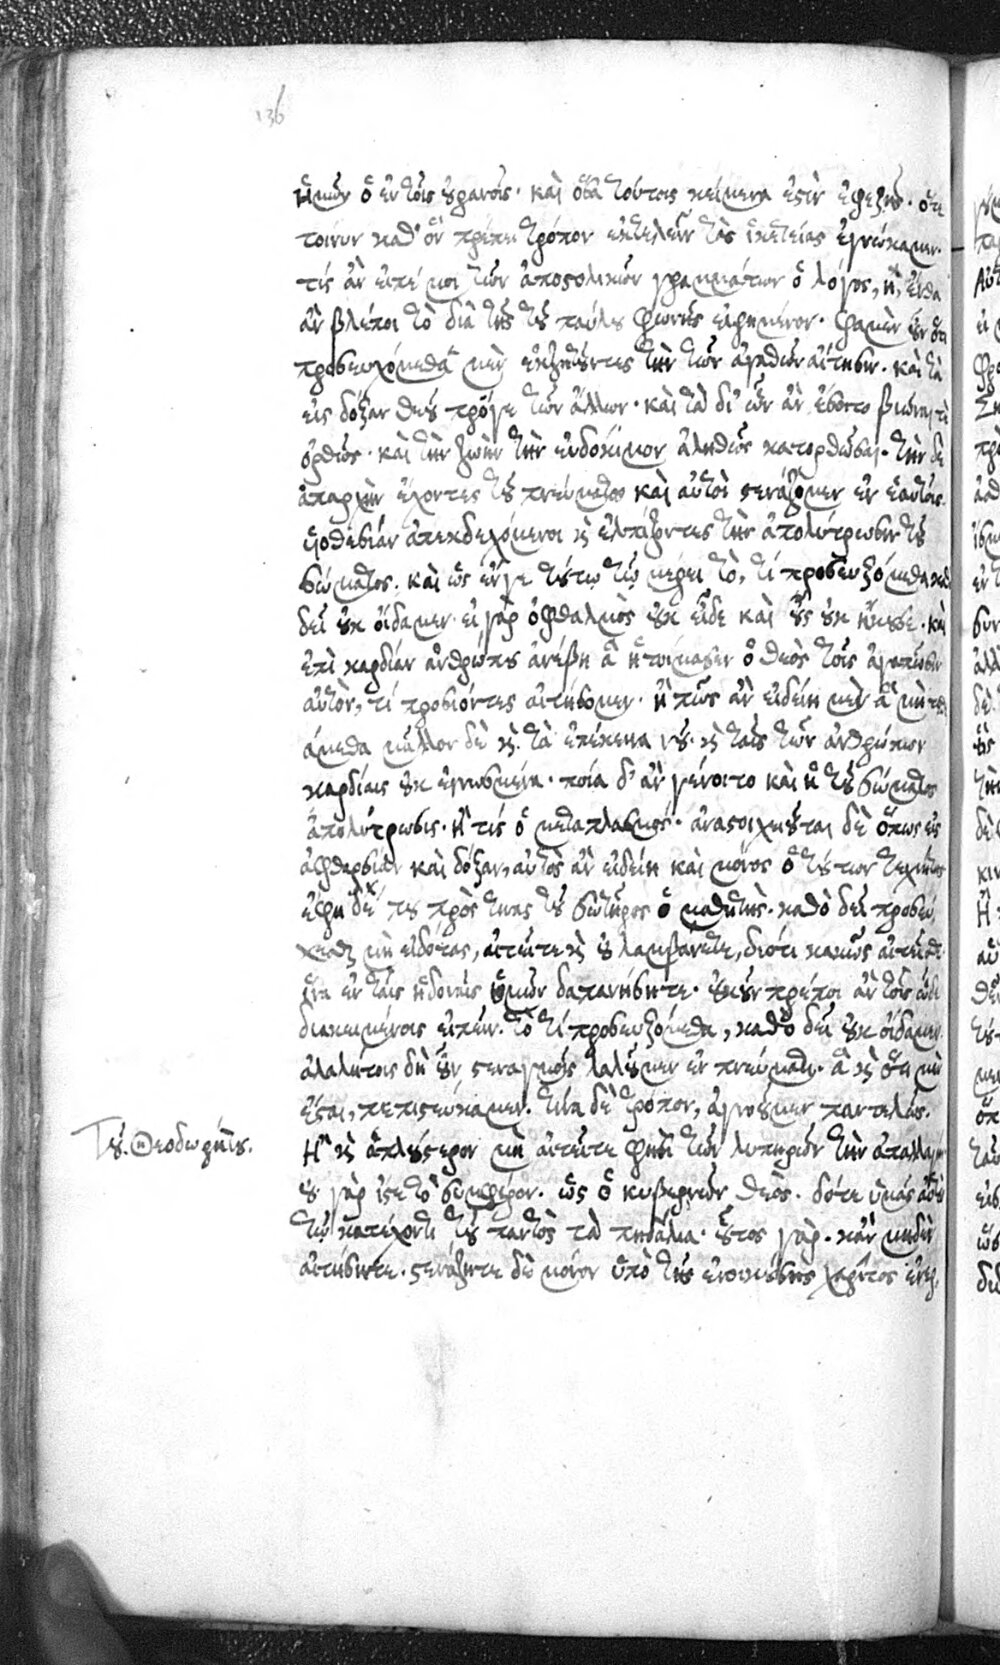 136
ἡμῶν ὁ ἐν τοῖς οὐρανοῖς. καὶ ὅσα τούτοις κείμενα ἐστὶν ἐφεξῆς. ὅτι
τοίνυν καθ' ὃν πρέπει τρόπον ἐκτελεῖν τὰς ἱκετείας ἐγνώκαμεν.
τίς ἂν εἴπέ μοι τῶν ἀποστολικῶν γραμμάτων ὁ λόγος, ἢ, ἔνθα
ἂν βλέποι τὸ διὰ τῆς τοῦ παύλου φωνῆς εἰρημένον. φαμὲν οὖν ὅτι
προσευχόμεθα μὲν ἐκζητοῦντες τὴν τῶν ἀγαθῶν αἴτησιν. καὶ τὰ
εἰς δόξαν θεοῦ πρόγε τῶν ἄλλων. καὶ τὰ δι' ὧν ἂν ἕποιτο βιῶναί τε
ὀρθῶς. καὶ τὴν ζωὴν τὴν εὐδόκιμον ἀληθῶς κατορθῶσαι. τὴν δὲ
ἀπαρχὴν ἔχοντες τοῦ πνεύματος καὶ αὐτοὶ στενάζομεν ἐν ἑαυτοῖς
υἱοθεσίαν ἀπεκδεχόμενοι κ ἐλπίζοντες τὴν ἀπολύτρωσιν τοῦ
σώματος. καὶ ὡς ἔνγε τούτῳ τῷ μέρει τὸ, τί προσευξόμεθα καθὸ
δεῖ οὐκ οἴδαμεν. εἰ γὰρ ὀφθαλμὸς οὐκ εἶδε καὶ οὖς οὐκ ἤκουσε. καὶ
ἐπὶ καρδίαν ἀνθρώπου ἀνέβη ἃ ἡτοίμασεν ὁ θεὸς τοῖς ἀγαπῶσιν
αὐτὸν, τί προσιόντες αἰτήσομεν. ἢ πῶς ἂν εἰδείημεν ἃ μὴ τε
άμεθα μᾶλλον δὲ κ τὰ ἐπέκεινα νοῦ. κ ταῖς τῶν ἀνθρώπων
καρδίαις οὐκ ἐγνωσμένα. ποία δ' ἂν γένοιτο καὶ ἡ τοῦ σώματος
ἀπολύτρωσις. ἢ τίς ὁ μεταπλασμός. ἀναστοιχειοῦται δὲ ὅπως εἰς
ἀφθαρσίαν καὶ δόξαν, αὐτὸς ἂν εἰδείη καὶ μόνος ὁ τούτων τεχνίτης
ἔφη δέ που πρός τινας τοῦ σωτῆρος ὁ μαθητὴς. καθὸ δεῖ προσεύ
χεσθαι μὴ εἰδότας, αἰτεῖτε κ οὐ λαμβάνετε, διότι κακῶς αἰτεῖσθε
ἵνα ἐν ταῖς ἡδοναῖς ὑμῶν δαπανήσητε. οὐκοῦν πρέποι ἂν τοῖς ὧδε
διακειμένοις εἰπεῖν. τὸ τί προσευξόμεθα, καθὸ δεῖ οὐκ οἴδαμεν.
ἀλαλήτοις δὴ οὖν στεναγμοῖς λαλοῦμεν ἐν πνεύματι. ἃ κ ὅτι μὲν
ἔσται, πεπιστεύκαμεν. τίνα δὲ τρόπον, ἀγνοοῦμεν παντελῶς.
Τοῦ Θεοδωρήτου.
Ἢ κ ἁπλούστερον μὴ αἰτεῖτε φησὶ τῶν λυπηρῶν τὴν ἀπαλλαγὴν
οὐ γὰρ ἴστε τὸ συμφέρον. ὡς ὁ κυβερνῶν θεὸς. δότε ὑμᾶς αὐτοὺς
τῷ κατέχοντι τοῦ παντὸς τὰ πηδάλια. οὗτος γὰρ. κἂν μηδὲν
αἰτήσητε. στενάζητε δὲ μόνον ὑπὸ τῆς ἐνοικούσης χάριτος ἐνερ